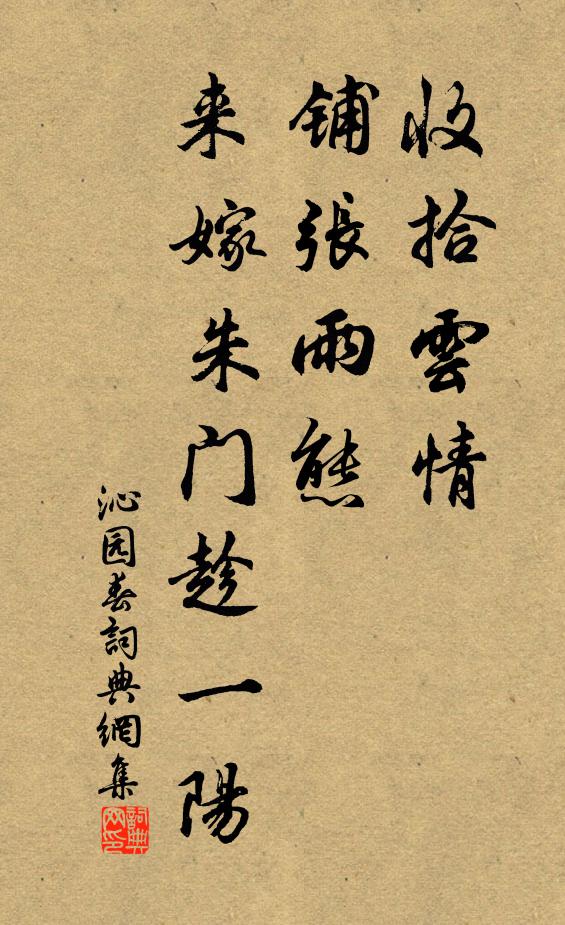 收拾雲情
铺張雨態
来嫁朱门趁一陽
沁园春詞典網集
詞典网印